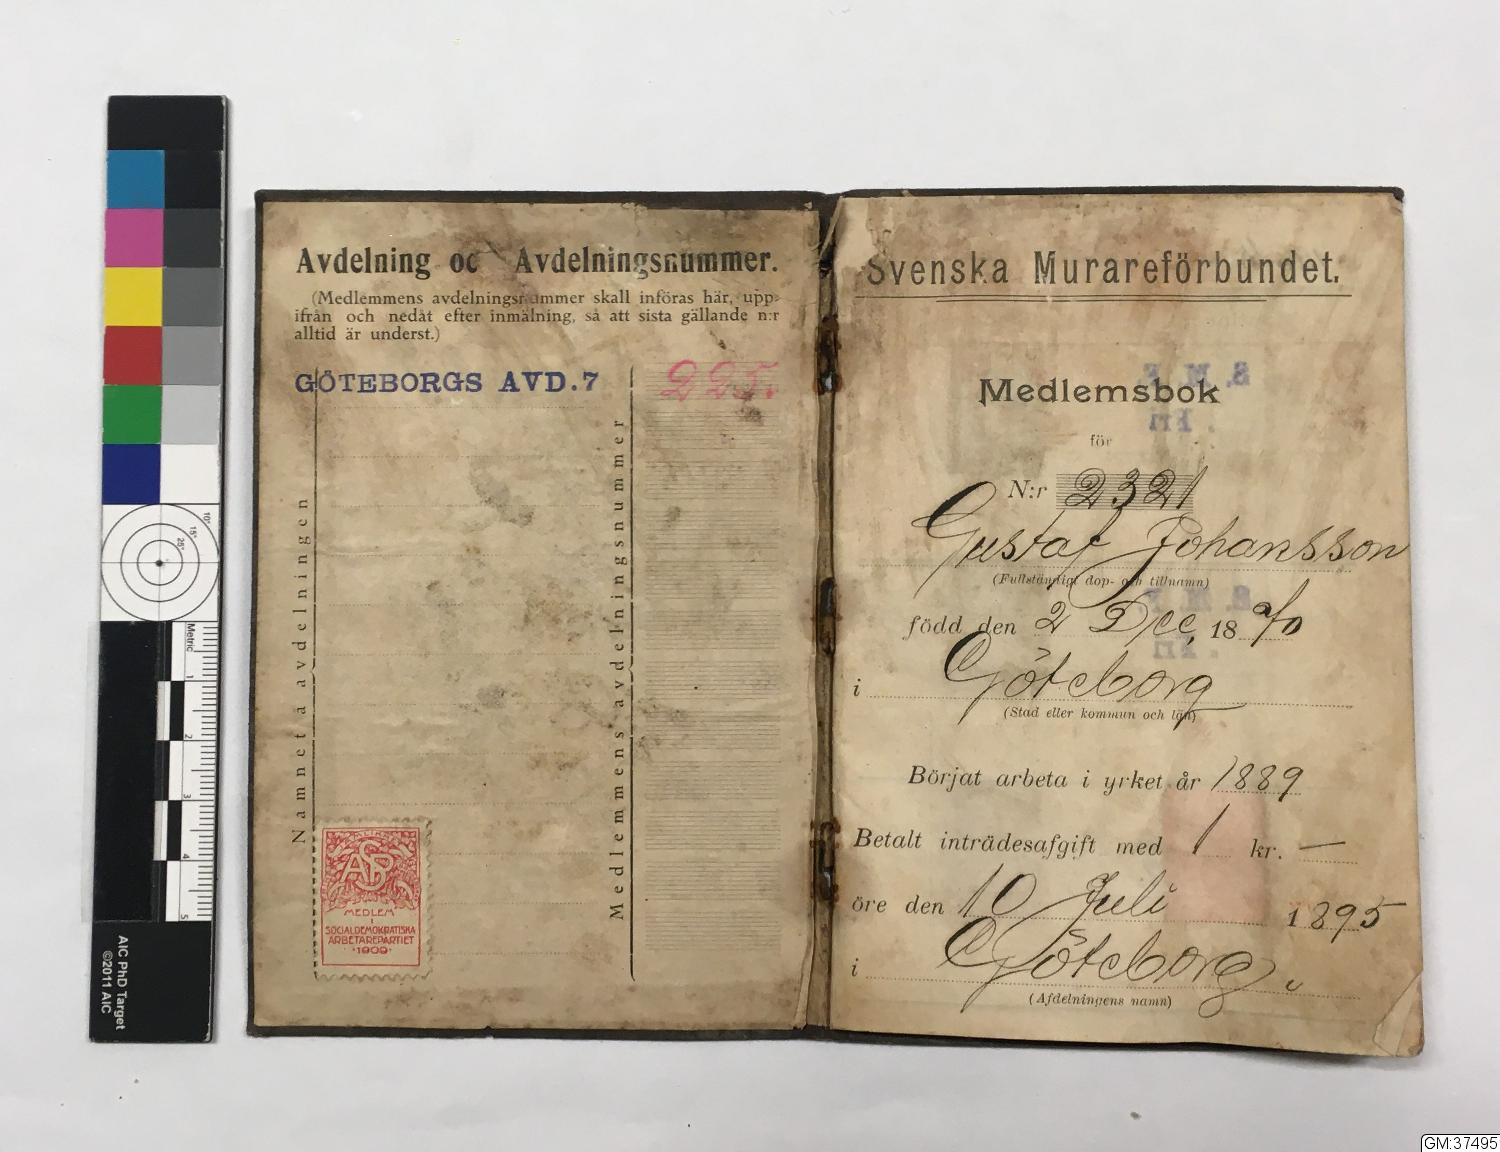 Avdelning oc Avdelningsnummer.
(Medlemmens avdelningsnummer skall införas här, upp-
ifrån och nedåt efter inmälning, så att sista gällande n:r
alltid är underst.)
GÖTEBORGS AVD. 7
225.
Namnet å avdelningen
Medlemmens avdelningsnummer
MEDLEM
I
SOCIALDEMOKRATISKA
ARBETAREPARTIET
·1909·
Svenska Murareförbundet.
Medlemsbok
för
N:r 2321
Gustaf Johansson
(Fullständigt dop- och tillnamn)
född den 2 Dec, 18
i Göteborg
(Stad eller kommun och län)
Börjat arbeta i yrket år 1889
Betalt inträdesafgift med 1 kr. —
öre den 10 Juli 1895
i Göteborg
(Afdelningens namn)
10°
15°
25°
Metric
1
2
3
4
5
AIC PhD Target
©2011 AIC
GM:37495